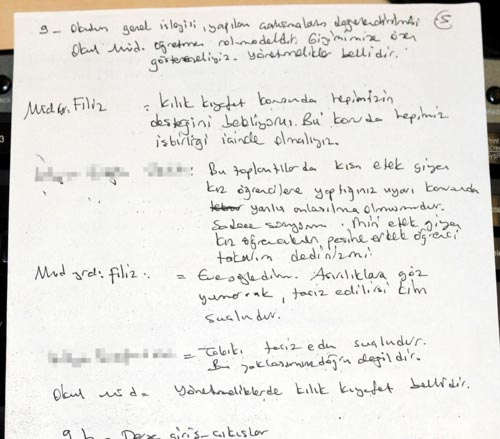 9- Okulun genel işleyişi, yapılan çalışmaların değerlendirilmesi
5
Okul Müd. öğretmen rolmodeldir. Giyimimize özen
göstermeliyiz. Yönetmelikler bellidir.
Müd. Filiz : Kılık kıyafet konusunda hepimizin
desteğini bekliyoruz. Bu konuda hepimiz
işbirliği içinde olmalıyız.
: Bu toplantılarda kısa etek giyen
kız öğrencilere yaptığınız uyarı konusunda
yanlış anlaşılma olmuşmudur.
Sadece soruyorum. Mini etek giyen
kız öğrencilerin peşine erkek öğrenci
takarım dedinizmi?
Müd yrd. Filiz : = Evet söyledim. Aşırılıklara göz
yumarak, taciz edilirse kim
suçludur.
= Tabiki taciz eden suçludur.
Bu yaklaşımınız doğru değildir.
Okul Müd. Yönetmeliklerde kılık kıyafet bellidir.
9.b - Derse giriş-çıkışlar